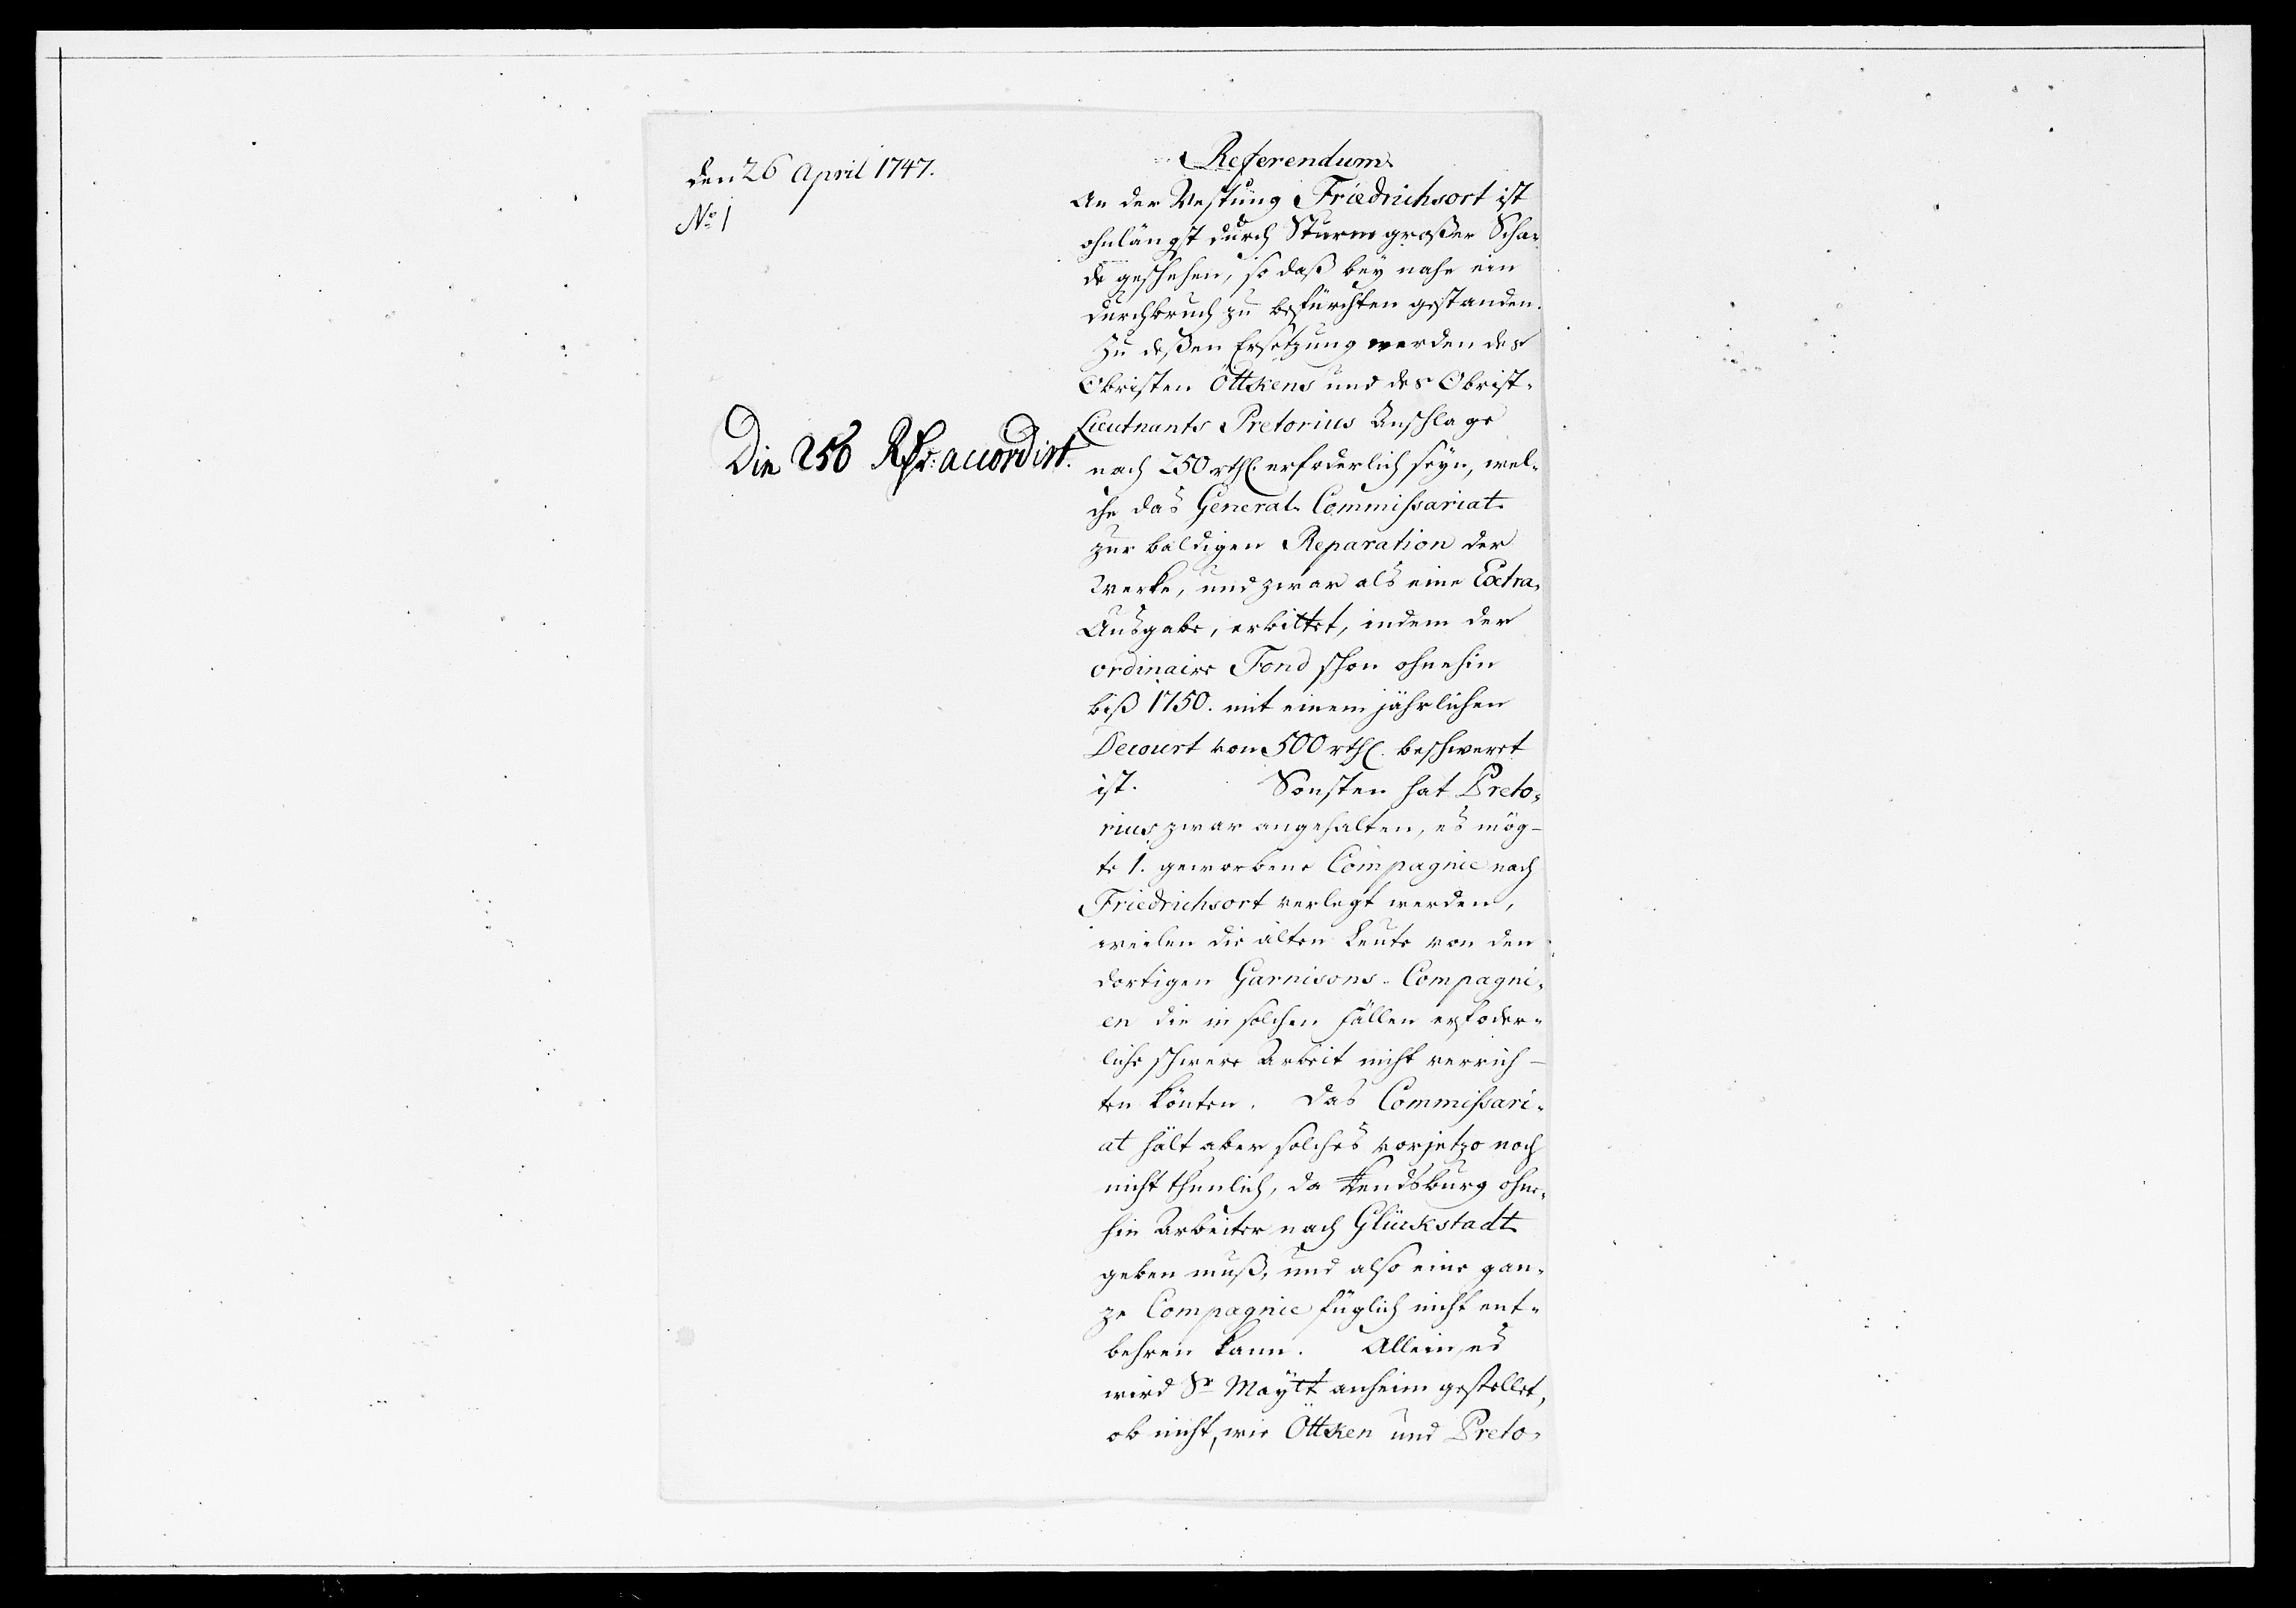 den 26 April 1747.
No 1
Die 250 Rthr: accordirt.
Referendum
An der Vestung Friedrichsort ist
ohnlängst durch Sturm großer Scha-
de geschehen, so daß bey nahe ein
durchbruch zu befürchten gestanden.
Zu deßen Ersetzung werden des
Obristen Öttkens und des Obrist-
Lieutnants Pretorius Anschlage
nach 250 rthl. erfoderlich seyn, wel-
che das General-Commissariat
zur baldigen Reparation der
Werke, und zwar als eine Extra-
Ausgabe, erbittet, indem der
ordinaire Fond schon ohnehin
biß 1750. mit einem jährlichen
Decourt von 500 rthl. beschwert
ist. Sonsten hat Preto-
rius zwar angehalten, es mög-
te 1. geworbene Compagnie nach
Friedrichsort verlegt werden,
weilen die alten Leute von den
dortigen Garnisons-Compagni-
en die in solchen Fällen erfoder-
liche schwere Arbeit nicht verrich-
ten könten. Das Commissari-
at hält aber solches vorjetzo noch
nicht thunlich, da Rendsburg ohne-
hin Arbeiter nach Glückstadt
geben muß, und also eine gan-
ze Compagnie füglich nicht ent-
behren kann. Allein, es
wird Sr Maytt anheim gestellet,
ob nicht, wie Öttken und Preto-